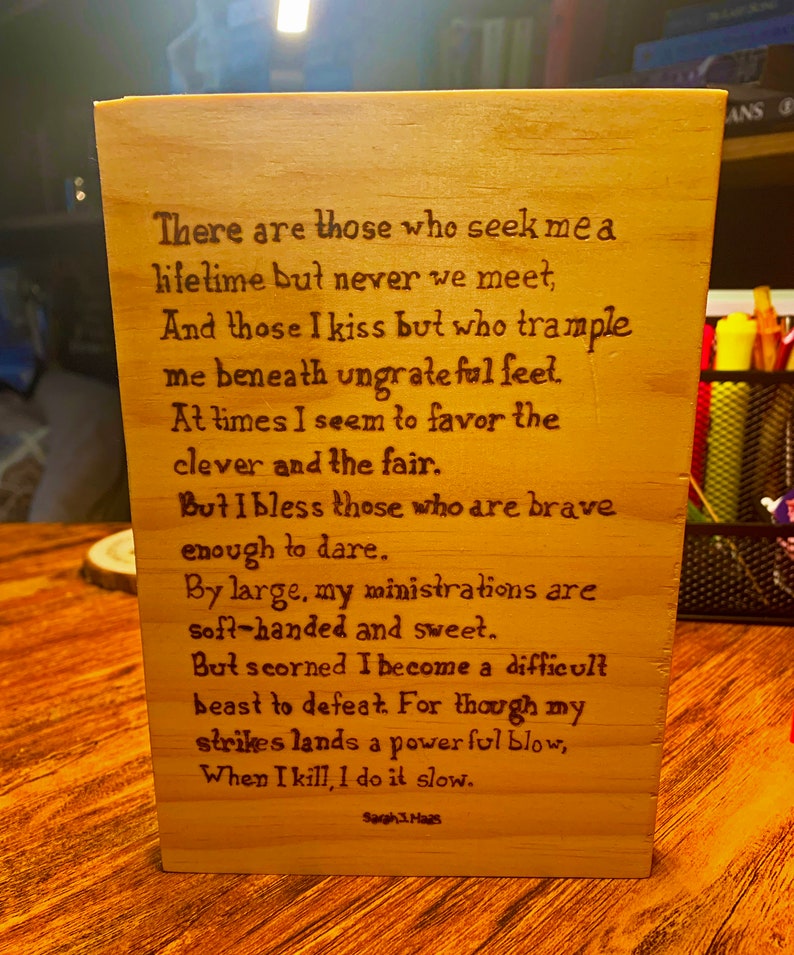 There are those who seek me a
lifetime but never we meet,
And those I kiss but who trample
me beneath ungrateful feet.
At times I seem to favor the
clever and the fair.
But I bless those who are brave
enough to dare.
By large, my ministrations are
soft-handed and sweet.
But scorned I become a difficult
beast to defeat. For though my
strikes lands a powerful blow,
When I kill, I do it slow.
Sarah J. Maas
ANS